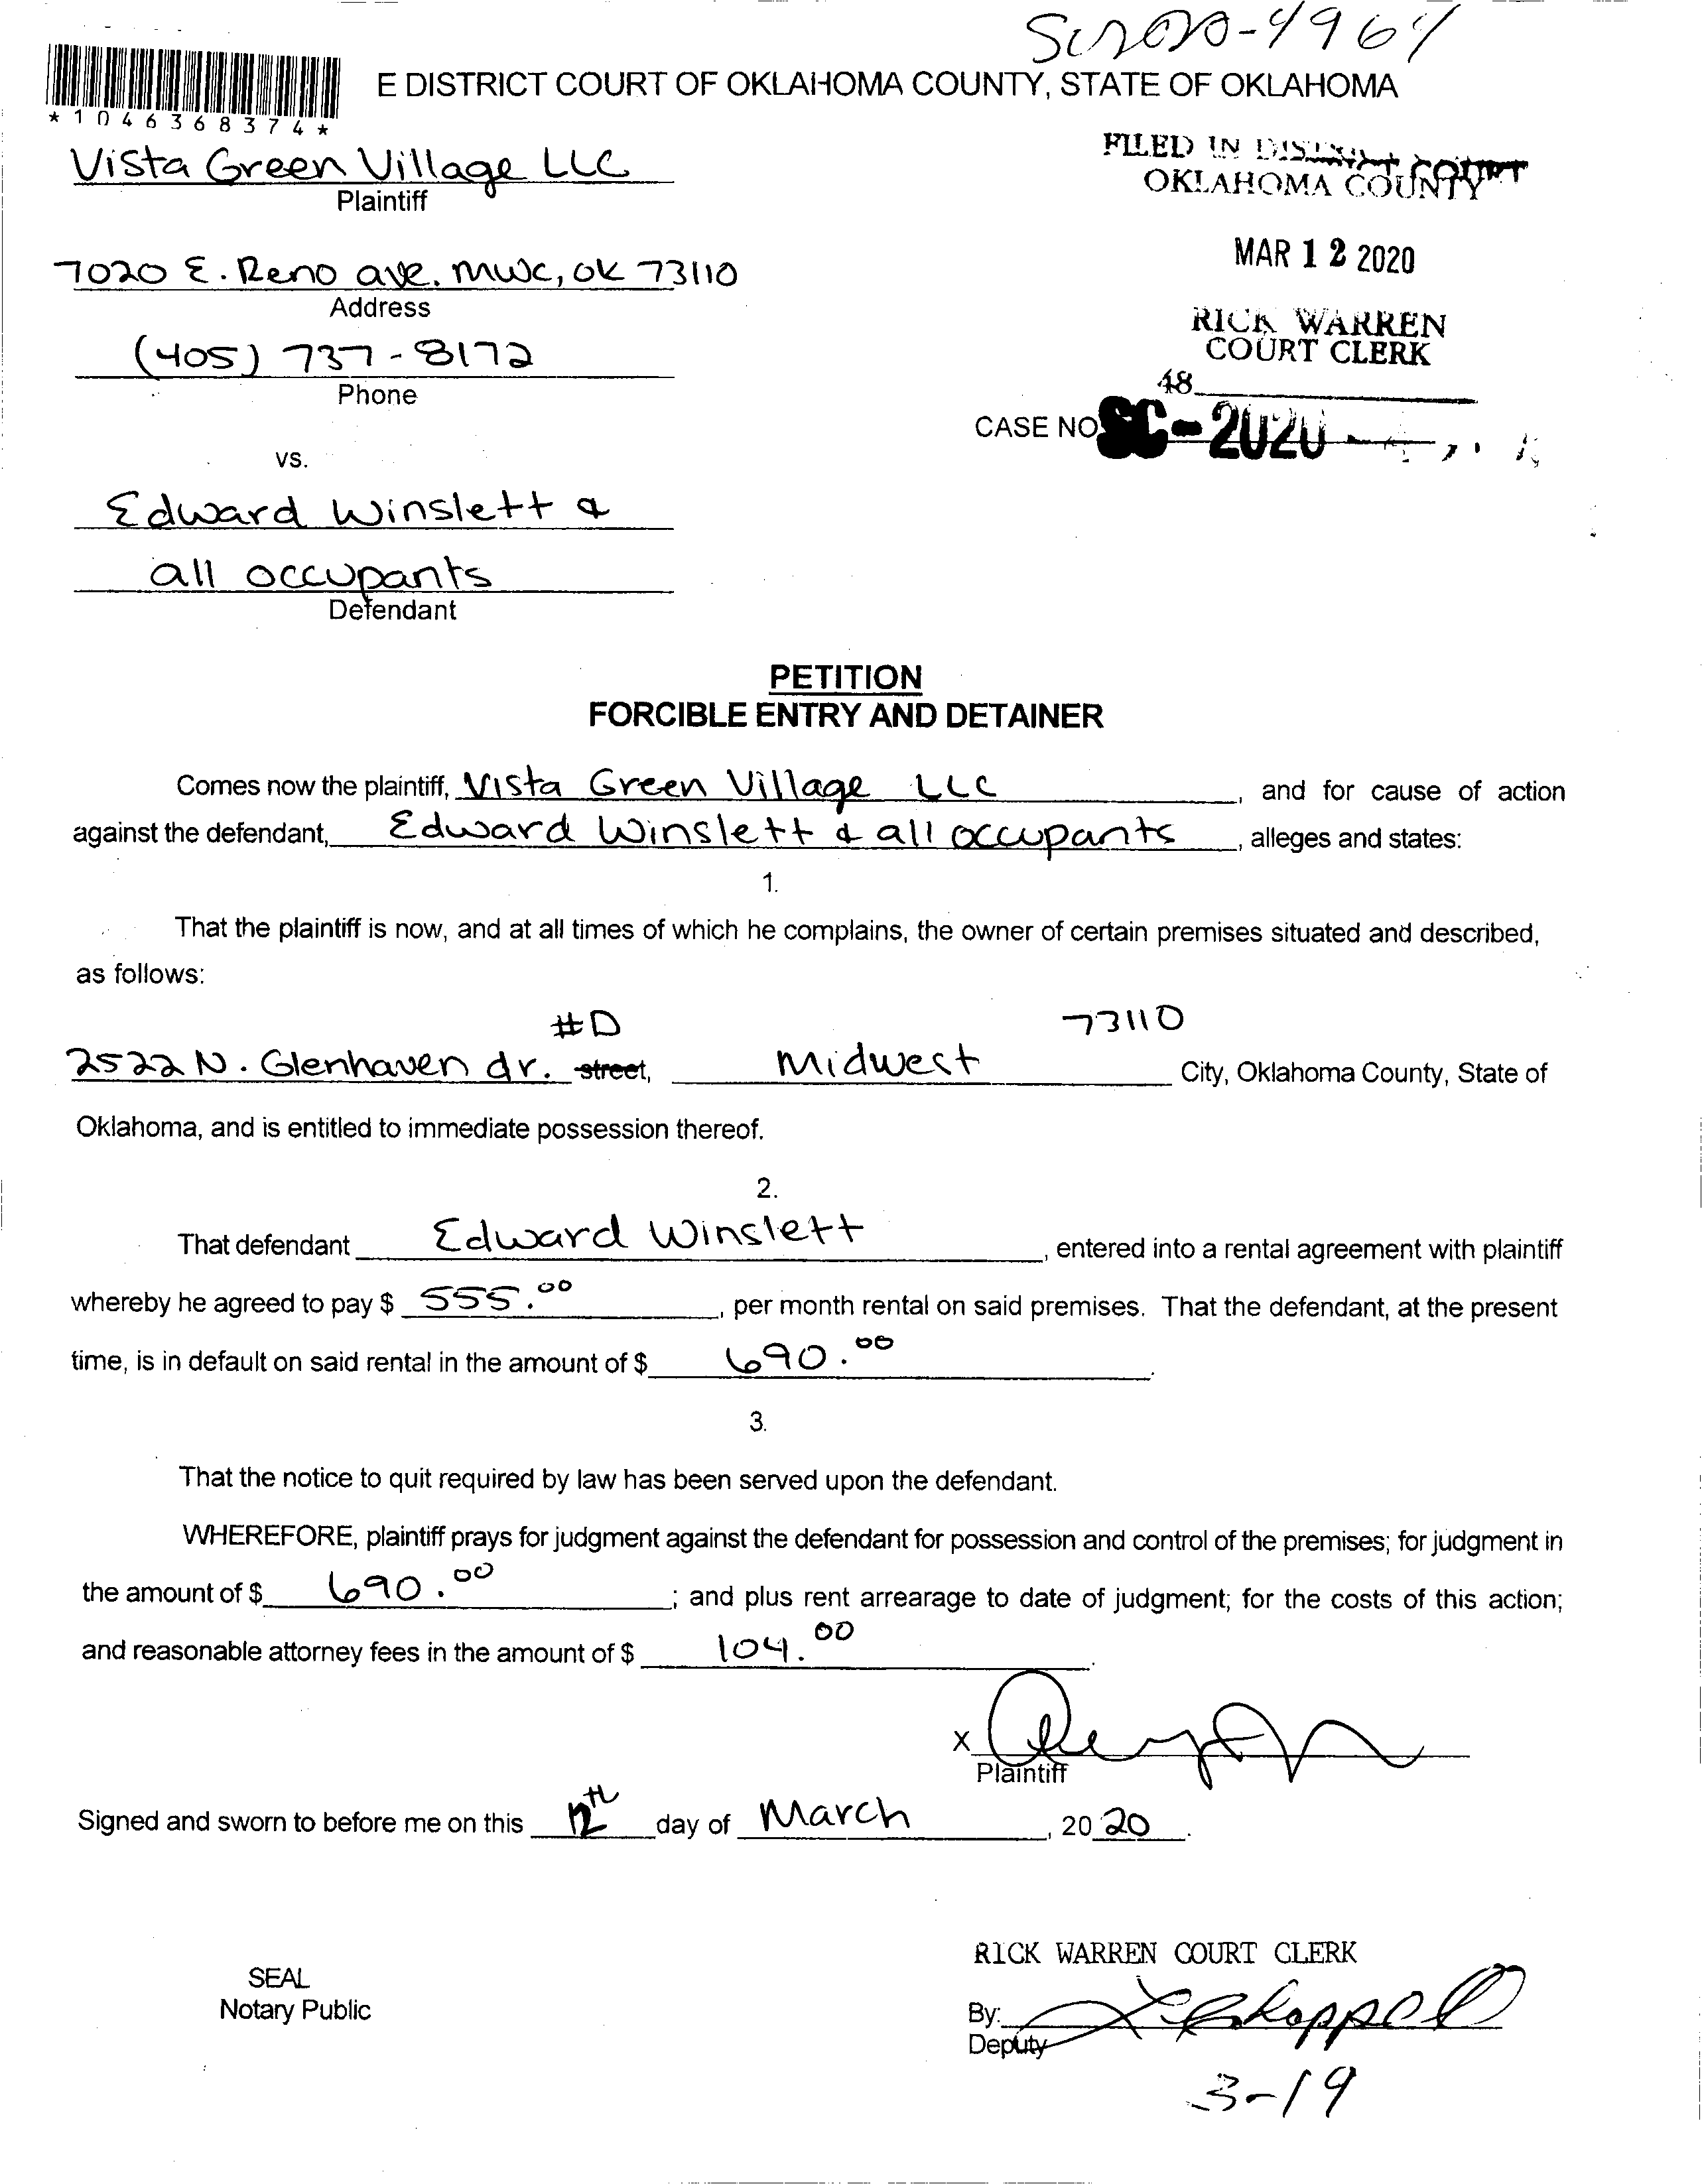 SC2020-4964
*1046368374*
E DISTRICT COURT OF OKLAHOMA COUNTY, STATE OF OKLAHOMA
Vista Green Village LLC
Plaintiff
FILED IN DISTRICT COURT
OKLAHOMA COUNTY
7020 E. Reno ave. MWC, OK 73110
Address
MAR 12 2020
(405) 737-8172
Phone
RICK WARREN
COURT CLERK
48
CASE NO SC-2020
vs.
Edward Winslett &
all occupants
Defendant
PETITION
FORCIBLE ENTRY AND DETAINER
Comes now the plaintiff, Vista Green Village LLC, and for cause of action
against the defendant, Edward Winslett & all occupants, alleges and states:
1.
That the plaintiff is now, and at all times of which he complains, the owner of certain premises situated and described,
as follows:
#D 73110
2522 N. Glenhaven dr. street, Midwest City, Oklahoma County, State of
Oklahoma, and is entitled to immediate possession thereof.
2.
That defendant Edward Winslett, entered into a rental agreement with plaintiff
whereby he agreed to pay $ 555.00, per month rental on said premises. That the defendant, at the present
time, is in default on said rental in the amount of $ 690.00.
3.
That the notice to quit required by law has been served upon the defendant.
WHEREFORE, plaintiff prays for judgment against the defendant for possession and control of the premises; for judgment in
the amount of $ 690.00; and plus rent arrearage to date of judgment; for the costs of this action;
and reasonable attorney fees in the amount of $ 104.00.
X
Plaintiff
Signed and sworn to before me on this 12th day of March, 2020.
RICK WARREN COURT CLERK
SEAL
Notary Public
By:
Deputy
3-19